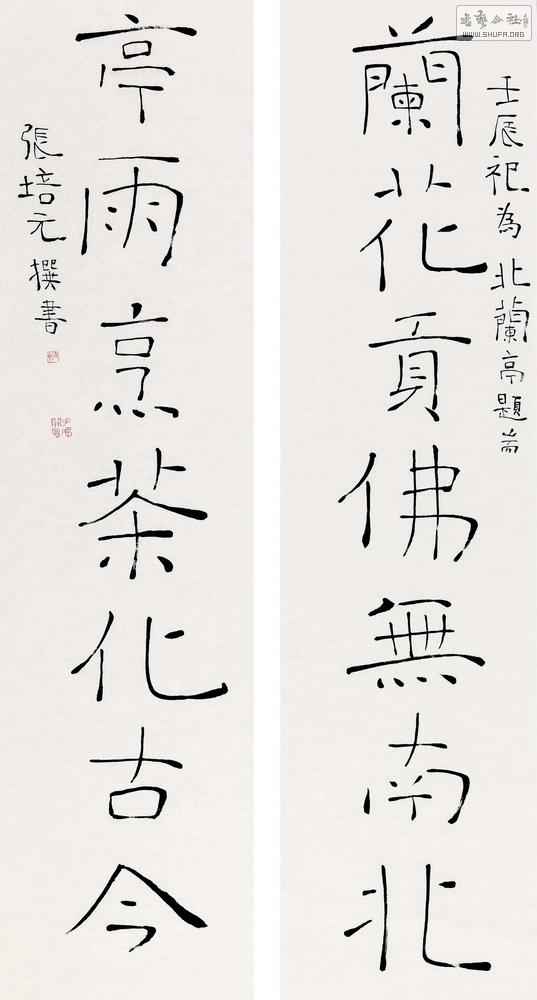 書藝公社
WWW.SHUFA.ORG
壬辰祀為北蘭亭題耑
蘭花貢佛無南北
亭雨烹茶化古今
張培元撰書